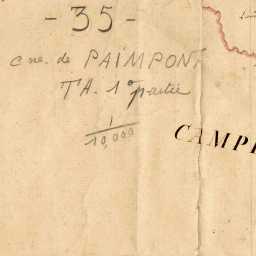 - 35 -
Cne. de PAIMPONT
TA. 1° partie
1
10,000
CAMP